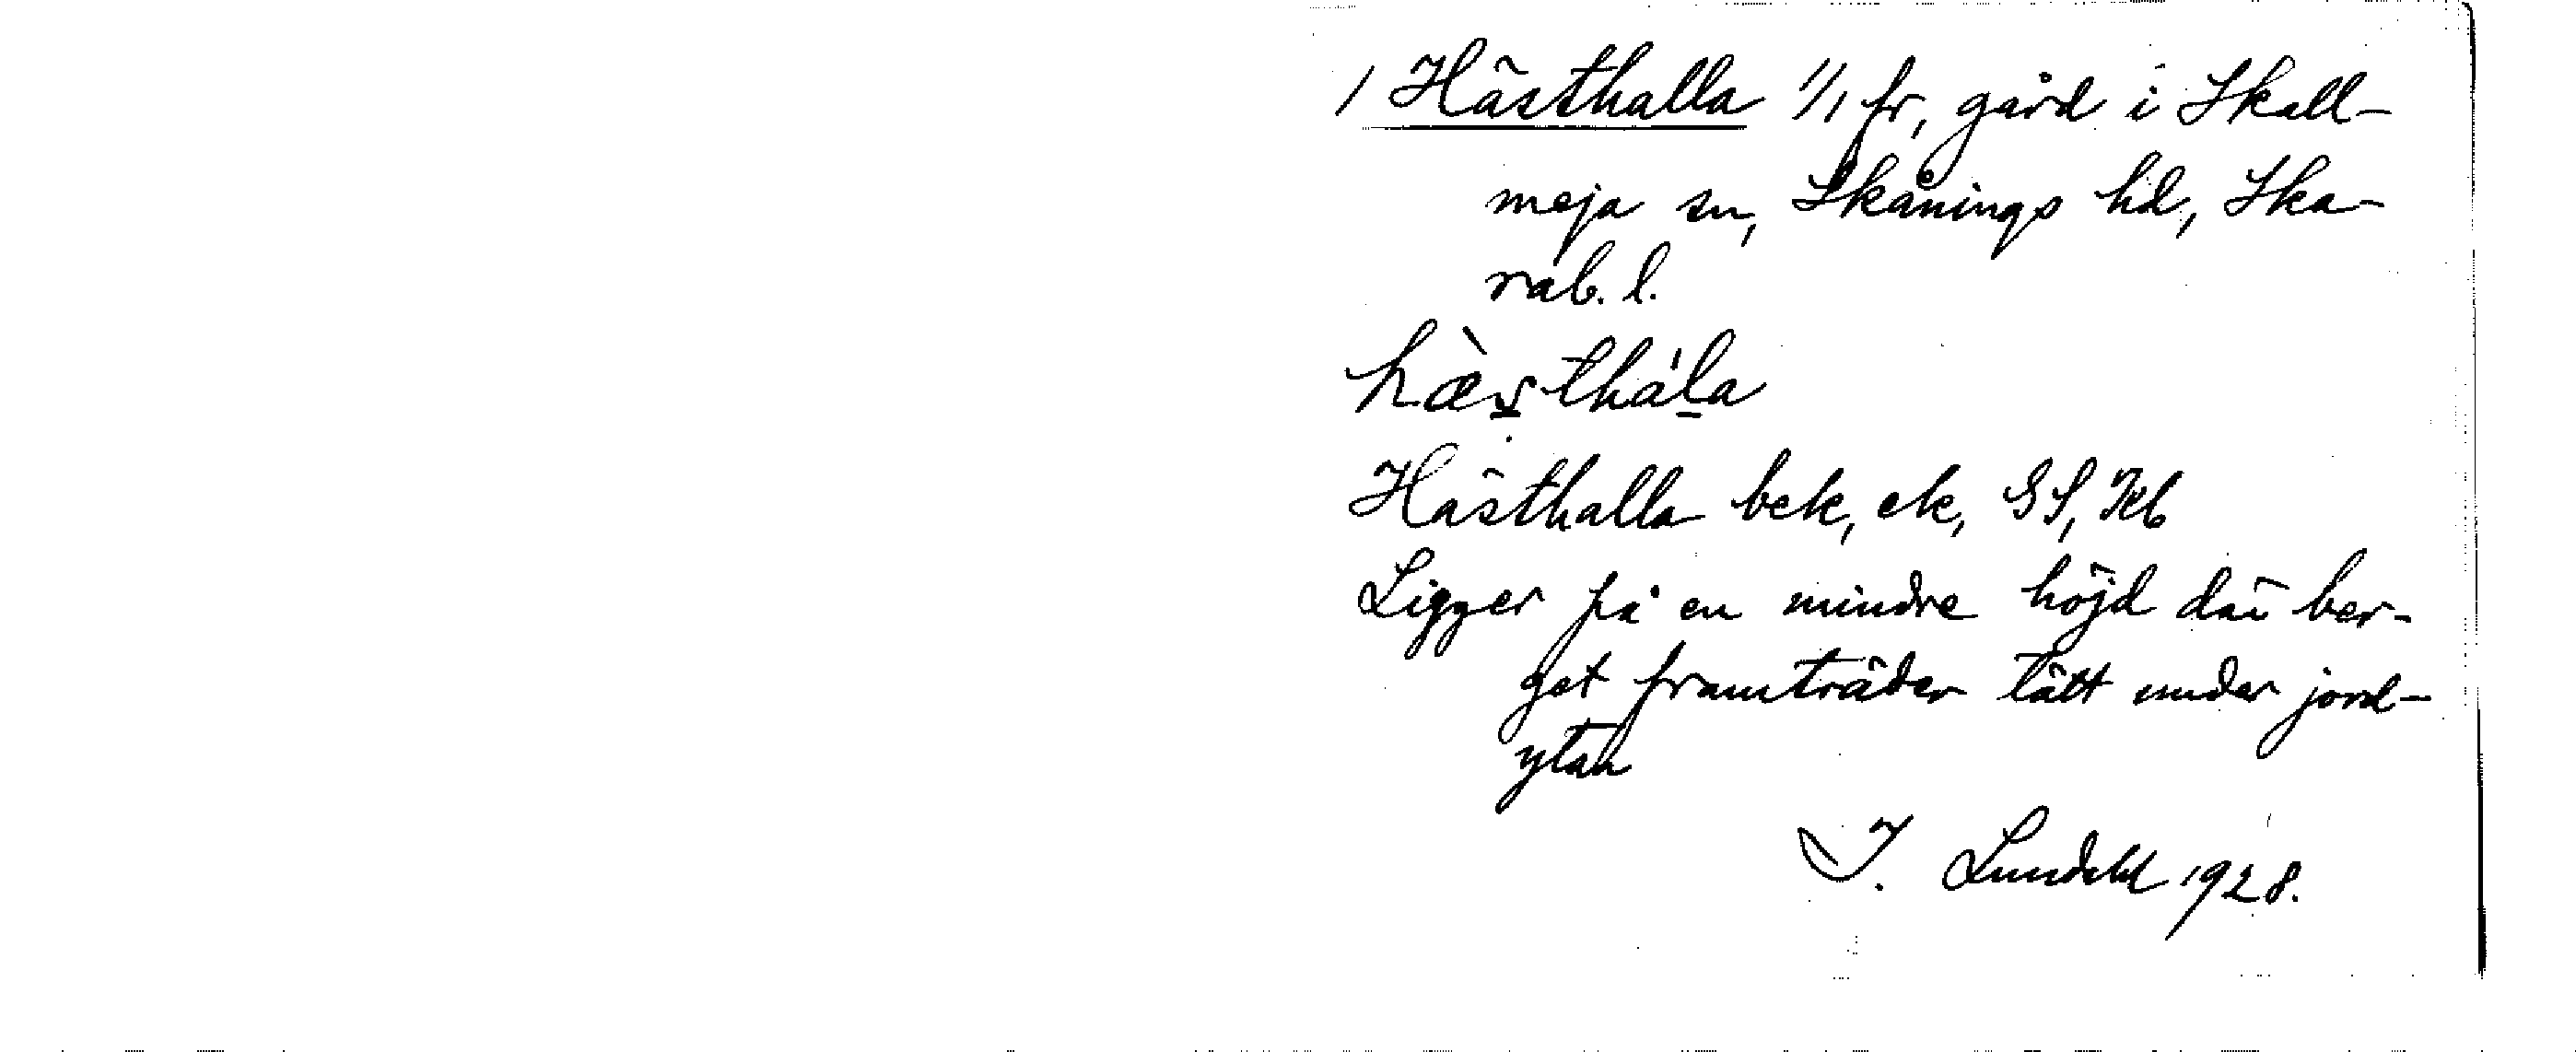 / Hästhalla 1/1 fr, gård i Skall-
meja sn, Skånings hd, Ska-
rab. l.
hæ̀sthá'la
Hästhalla bek, ek, GS, Jb
Ligger på en mindre höjd där ber-
get framträder tätt under jord-
ytan
I. Lundahl 1928.